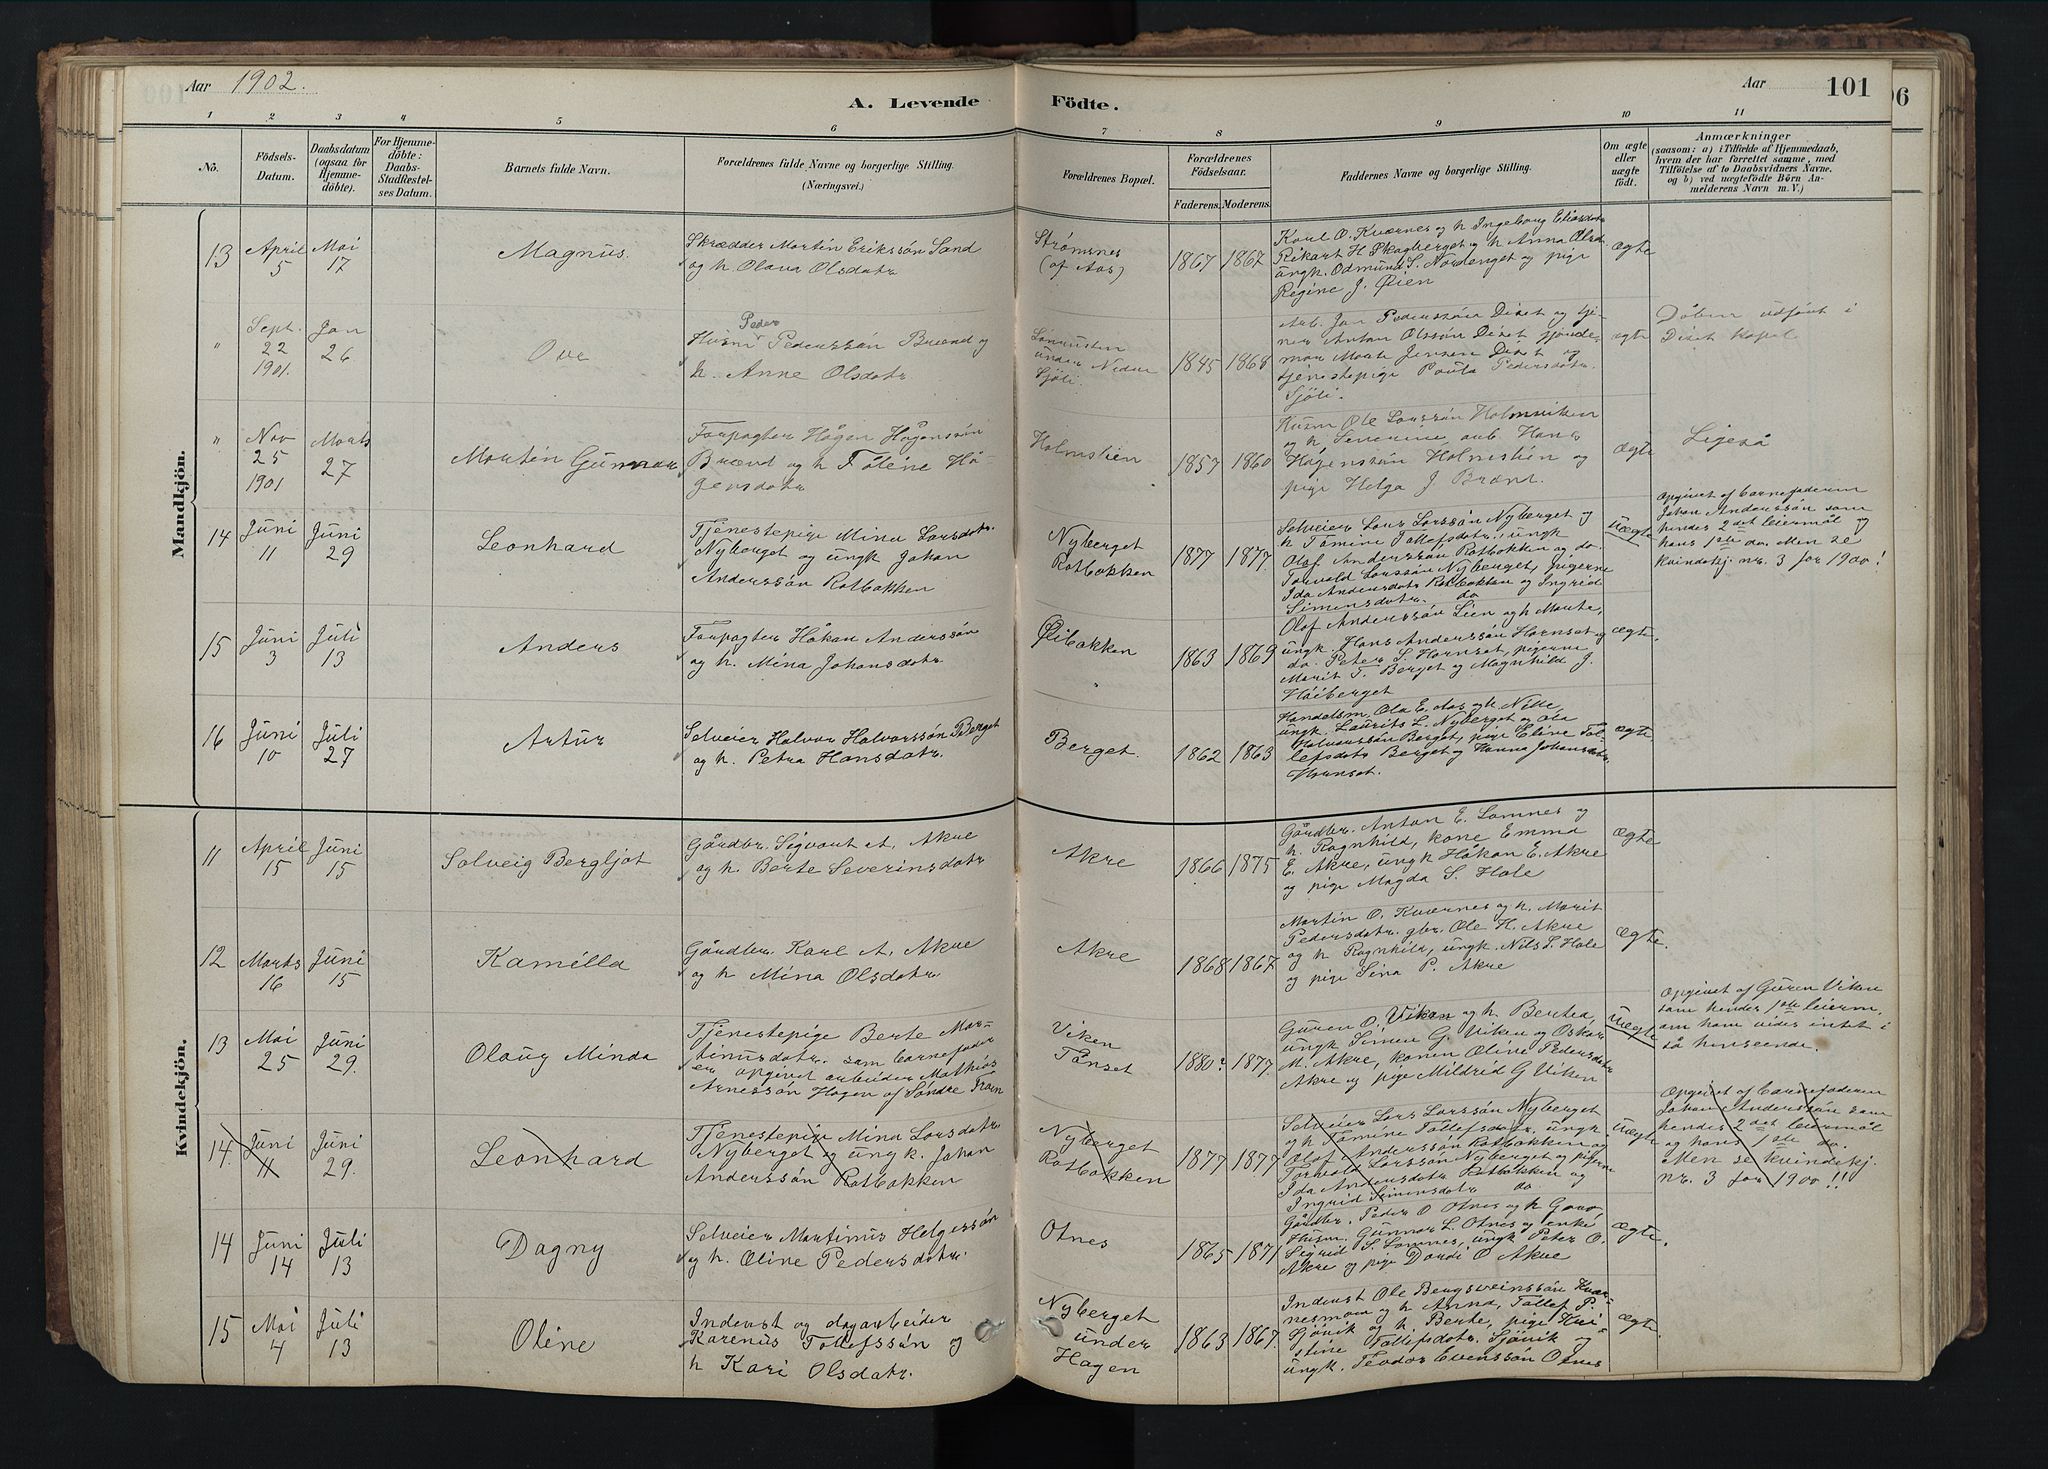 Aar 1902.
A. Levende Födte.
Aar 101
1 2 3 4 5 6 7 8 9 10 11
No.
Födsels-Datum.
Daabsdatum (ogsaa för Hjemmedöbte).
For Hjemmedöbte: Daabs-Stadfæstelses Datum.
Barnets fulde Navn.
Forældrenes fulde Navne og borgerlige Stilling.
(Næringsvei.)
Forældrenes Bopæl.
Forældrenes Födselsaar.
Faderens. Moderens.
Faddernes Navne og borgerlige Stilling.
Om ægte eller uægte födt.
Anmærkninger
(saasom: a) i Tilfælde af Hjemmedaab,
hvem der har forrettet samme, med
Tilföielse af to Daabsvidners Navne.
og b) ved uægtefödte Börn An-
melderens Navn m. V.)
Mandkjön.
13 April 5 Mai 17 Magnus.
Skrædder Martin Erikssön Sand
og h. Olava Olsdatr
Strømsnes
(af Aas)
1867 1867
Karl O. Kværnes og h. Ingeborg Eliasdatr
Rikart H. Skogberget og h. Anna Olsd.
ungk. Odmund S. Nordenget og pige
Regine J. Øien
ægte
" Sept. 22 1901. Jan 26 Ove
Peder
Husm Pederssön Brænd og
h. Anne Olsdatr.
under Nedre
Sjöli
1845 1868
Arb. Jon Pederssön Diset og tje-
ner Anton Olssön Diset gjæude-
man Marte Jensen Diset og
tjenestepige Paula Pedersdatr.
Sjöli.
ægte
Dåben udført i
Diset Kapel
" Nov 25 1901 Marts 27 Martin Gunnar
Forpagter Hågen Hågenssön
Brænd og h Tolène Hå-
gensdatr
Holmstien
1857 1860
Husm Ole Larssön Holmviken
og h Severine, arb. Hans
Hågenssön Holmstien og
pige Helga J. Brænd.
ægte
Ligeså
14 Juni 11 Juni 29 Leonhard
Tjenestepige Mina Larsdatr.
Nyberget og ungk Johan
Anderssön Rotbakken
Nyberget
Rotbakken
1877 1877
Selveier Lars Larssön Nyberget og
h Tomine Tollefsdatr., ungk
Olaf Anderssön Rotbakken og do.
Torvald Larssön Nyberget, pigerne
Ida Andersdatr Rotbakken og Ingrid
Simensdatr. do
uægte
Opgivet af barnefaderen
Johan Anderssön som
hendes 2det leiermål og
hans 1ste do. Men se
Kvindekj. nr. 3 for 1900!
15 Juni 3 Juli 13 Anders
Forpagter Håkan Anderssön
og h. Mina Johansdatr.
Øibakken
1863 1869
Olof Anderssön Lien og h Marte,
ungk. Hans Anderssön Hornset og
do. Peter S. Hornset, pigerne
Marit T. Berget og Magnhild J.
Höiberget
ægte.
16 Juni 10 Juli 27 Artur
Selveier Halvor Halvorssön Berget
og h. Petra Hansdatr.
Berget.
1862 1863
Handelsm. Ola E. Aas og h. Nille,
ungk. Laurits L. Nyberget og Ola
Halvorssön Berget, pige Eline Tol-
lefsdatr Berget og Hanna Johansdatr.
Hornset.
ægte
Kvindekjön.
11 April 15 Juni 15 Solveig Bergljot
Gårdbr. Sigvart A. Akre
og h. Berte Severinsdatr
Akre
1866 1875
Gårdbr. Anton E. Lomnes og
h. Ragnhild, kone Emma
E. Akre, ungk Håkan E. Akre
og pige Magda S. Hole
ægte
12 Marts 16 Juni 15 Kamilla
Gårdbr. Karl A. Akre
og h Mina Olsdatr.
Akre
1868 1867
Martin O. Kværnes og h. Marit
Pedersdatr. gbr. Ole H. Akre
og h Ragnhild, ungk. Nils S. Hole
og pige Sina P. Akre
ægte.
13 Mai 25 Juni 29. Olaug Minda
Tjenestepige Berte Mar-
tinusdatr. som barnefader
er opgivet arbeider Mathias
Arnessön Hagen af Söndre Tran
Viken
Tånset
1880? 1877
Guren O Viken og h. Bertea,
ungk Simen G. Viken og Oskar
M. Akre, konen Oline Pedersdatr
Akre og pige Mildrid G Viken
uægte
Opgivet af Guren Viken
som hendes 1ste leierm,
om ham vides intet i
så henseende.
14. Juni 11 Juni 29. Leonhard
Tjenestepige Mina Larsdatr.
Nyberget og ungk. Johan
Anderssön Rotbakken
Nyberget
Rotbakken
1877 1877
Selveier Lars Larssön Nyberget
og h Tomine Tollefsdatr, ungk.
Olaf Anderssön Rotbakken og
Torvald Larssön Nyberget og pigerne
Ida Andersdatr. Rotbakken og
Ingrid Simensdatr do
uægte
Opgivet af barnefaderen
Johan Anderssön som
hendes 2det leiermål
og hans 1ste do.
Men se kvindekj.
nr. 3 for 1900!!
14 Juni 14 Juli 13 Dagny
Selveier Martinus Helgessön
og h. Oline Pedersdatr.
Otnes
1865 1871
Gårdbr. Peder O Otnes og h
Husm. Gunnar L. Otnes og
Sigrid S. Lomnes, ungk Peter O.
Akre og pige Dordi O Akre
ægte.
15 Mai 4 Juli 13 Oline
Inderst og dagarbeider
Karenus Tollefssön og
h Kari Olsdatr.
Nyberget
under
Hagen
1863 1867.
Inderst Ole Bergsveinssön Kvær-
nesmoen og h Anna, Tollef P.
Sjövik og h. Berte, pige Kri-
stine Tollefsdatr. Sjövik og
ungk. Teodor Evenssön Otnes
ægte.